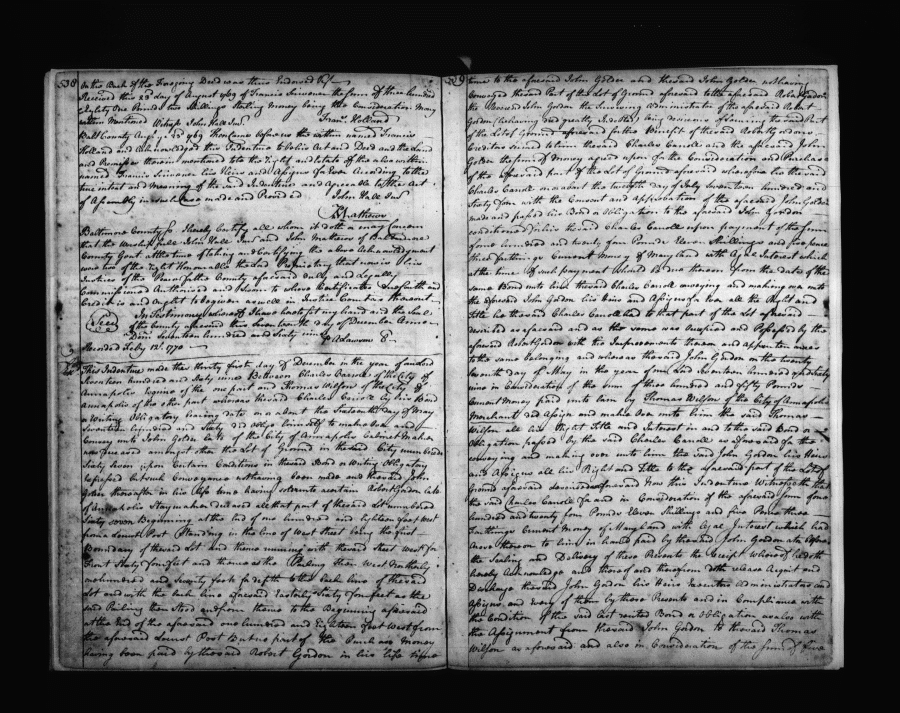 538
On the Back of the Foregoing Deed was thus Endorsed Viz
Received this 23d day of August 1769 of Francis the sum of three hundred
Eighty One Pounds two Shillings Sterling Money being the Consideration Money
within Mentioned Witness John Hall Junr Frans. Holland
Balt County Augt ye 23d 1769 Then Came before us the within named Francis
Holland and Acknowledged this Indenture to be his Act and Deed and the Land
and Premises therein mentioned to be the Right and Estate of the within
named Francis his Heirs and Assigns for Ever According to the
true intent and Meaning of the said Indenture and Agreeable to the Act
of Assembly in such Case made and Provided John Hall Junr
J Mathews
Baltimore County Ss I hereby Certify all whom it doth or may Concern
that the Worshipfull John Hall Junr and John Mathews of Baltimore
County Gent at the time of taking and Certifying the above Acknowledgment
were two of the Right Honourable the Lord Proprietary that now is his
Justices of the Peace for the County aforesaid Duly and Legally
Commissioned Authorized and Sworn to whose Certificates due faith and
Credit is and ought to be given as well in Justice Courts as thereout
In Testimony whereof I have hereto set my hand and the Seal
Seal
of the County aforesaid this Seventeenth day of December Anno
Dom Seventeen hundred and Sixty nine
A Lawson C
Recorded Feby 12th 1770
This Indenture made this thirty first day of December in the year of our Lord
Seventeen hundred and Sixty nine Between Charles Carroll of the City of
Annapolis Esquire of the one part and Thomas Wilson of the City of
Annapolis of the other part whereas the said Charles Carroll by his Bond
or Writing Obligatory bearing date on or about the Sixteenth day of May
Seventeen hundred and Sixty did oblige himself to make Over and
Convey unto John Golder late of the City of Annapolis Cabinet Maker
now deceased amongst other the Lot of Ground in the said City number'd
Sixty Seven upon Certain Conditions in the said Bond or Writing Obligatory
expressed but such Conveyance not having been made and the said John
Golder thereafter in his life time having sold unto a certain Robert Gordon late
of Annapolis Staymaker deceased all that part of the said Lot numbered
Sixty seven Beginning at the End of one hundred and eighteen feet West
from a Locust Post Standing in the line of West Street being the first
Boundary of the said Lot and thence running with the said Street West for
Front Sixty four feet and thence as the Paling then Went Northerly
one hundred and Seventy foot for depth to the back line of the said
Lot and with the back line aforesaid Easterly Sixty four feet as the
said Paling then Stood and from thence to the Beginning aforesaid
at the End of the aforesaid one hundred and Eighteen feet West from
the aforesaid Locust Post But no part of the Purchase Money
having been paid by the said Robert Gordon in his life time
539
time to the aforesaid John Golder and the said John Golder not having
Conveyed the said Part of the Lot of Ground aforesaid to the aforesaid Robt Gordon
the aforesaid John Gordon the Surviving Administrator of the aforesaid Robert
Gordon (he having died greatly Indebted) being desirous of the said Part
of the Lot of Ground aforesaid for the Benefit of the said Robt Gordons
Creditors to him the said Charles Carroll and the aforesaid John
Golder the sum of Money agreed upon for the Consideration and Purchase
of the aforesaid part of the Lot of Ground aforesaid wherefore he the said
Charles Carroll on or about the twelfth day of July Seventeen hundred and
Sixty four with the Consent and approbation of the aforesaid John Golder
made and passed his Bond or Obligation to the aforesaid John Gordon
conditioned for his the said Charles Carroll upon payment of the sum
of one hundred and twenty four Pounds Eleven Shillings and five pence
three farthings Current Money of Maryland with Legal Interest which
at the time of such payment should be due thereon from the date of the
same Bond unto him the said Charles Carroll conveying and making over unto
the aforesaid John Gordon his Heirs and Assigns for Ever all the Right and
title he the said Charles Carroll had to that part of the Lot aforesaid
described as aforesaid and as the same was Occupied and Possessed by the
aforesaid Robert Gordon with the Improvements thereon and appurtenances
to the same belonging and whereas the said John Gordon on the twenty
Seventh day of May in the year of our Lord Seventeen hundred and sixty
nine in Consideration of the sum of three hundred and fifty Pounds
Current Money paid unto him by Thomas Wilson of the City of Annapolis
Merchant did Assign and make Over unto him the said Thomas
Wilson all his Right Title and Interest in and to the said Bond or
Obligation passed by the said Charles Carroll as aforesaid for the
conveying and making over unto him the said John Gordon his Heirs
and Assigns all his Right and Title to the aforesaid part of the Lot of
Ground aforesaid described as aforesaid Now this Indenture Witnesseth that
the said Charles Carroll for and in Consideration of the aforesaid sum of one
hundred and twenty four Pounds Eleven Shillings and five Pence three
Farthings Current Money of Maryland with Legal Interest which had
arose thereon to him in hand paid by the said John Gordon at or before
the Sealing and Delivery of these Presents the Receipt whereof he doth
hereby Acknowledge and thereof and therefrom doth release Acquit and
Discharge the said John Gordon his Heirs Executors Administrators and
Assigns and every of them by these Presents and in Compliance with
the Condition of the said last recited Bond or Obligation as also with
the Assignment from the said John Gordon to the said Thomas
Wilson as aforesaid and also in Consideration of the sum of five